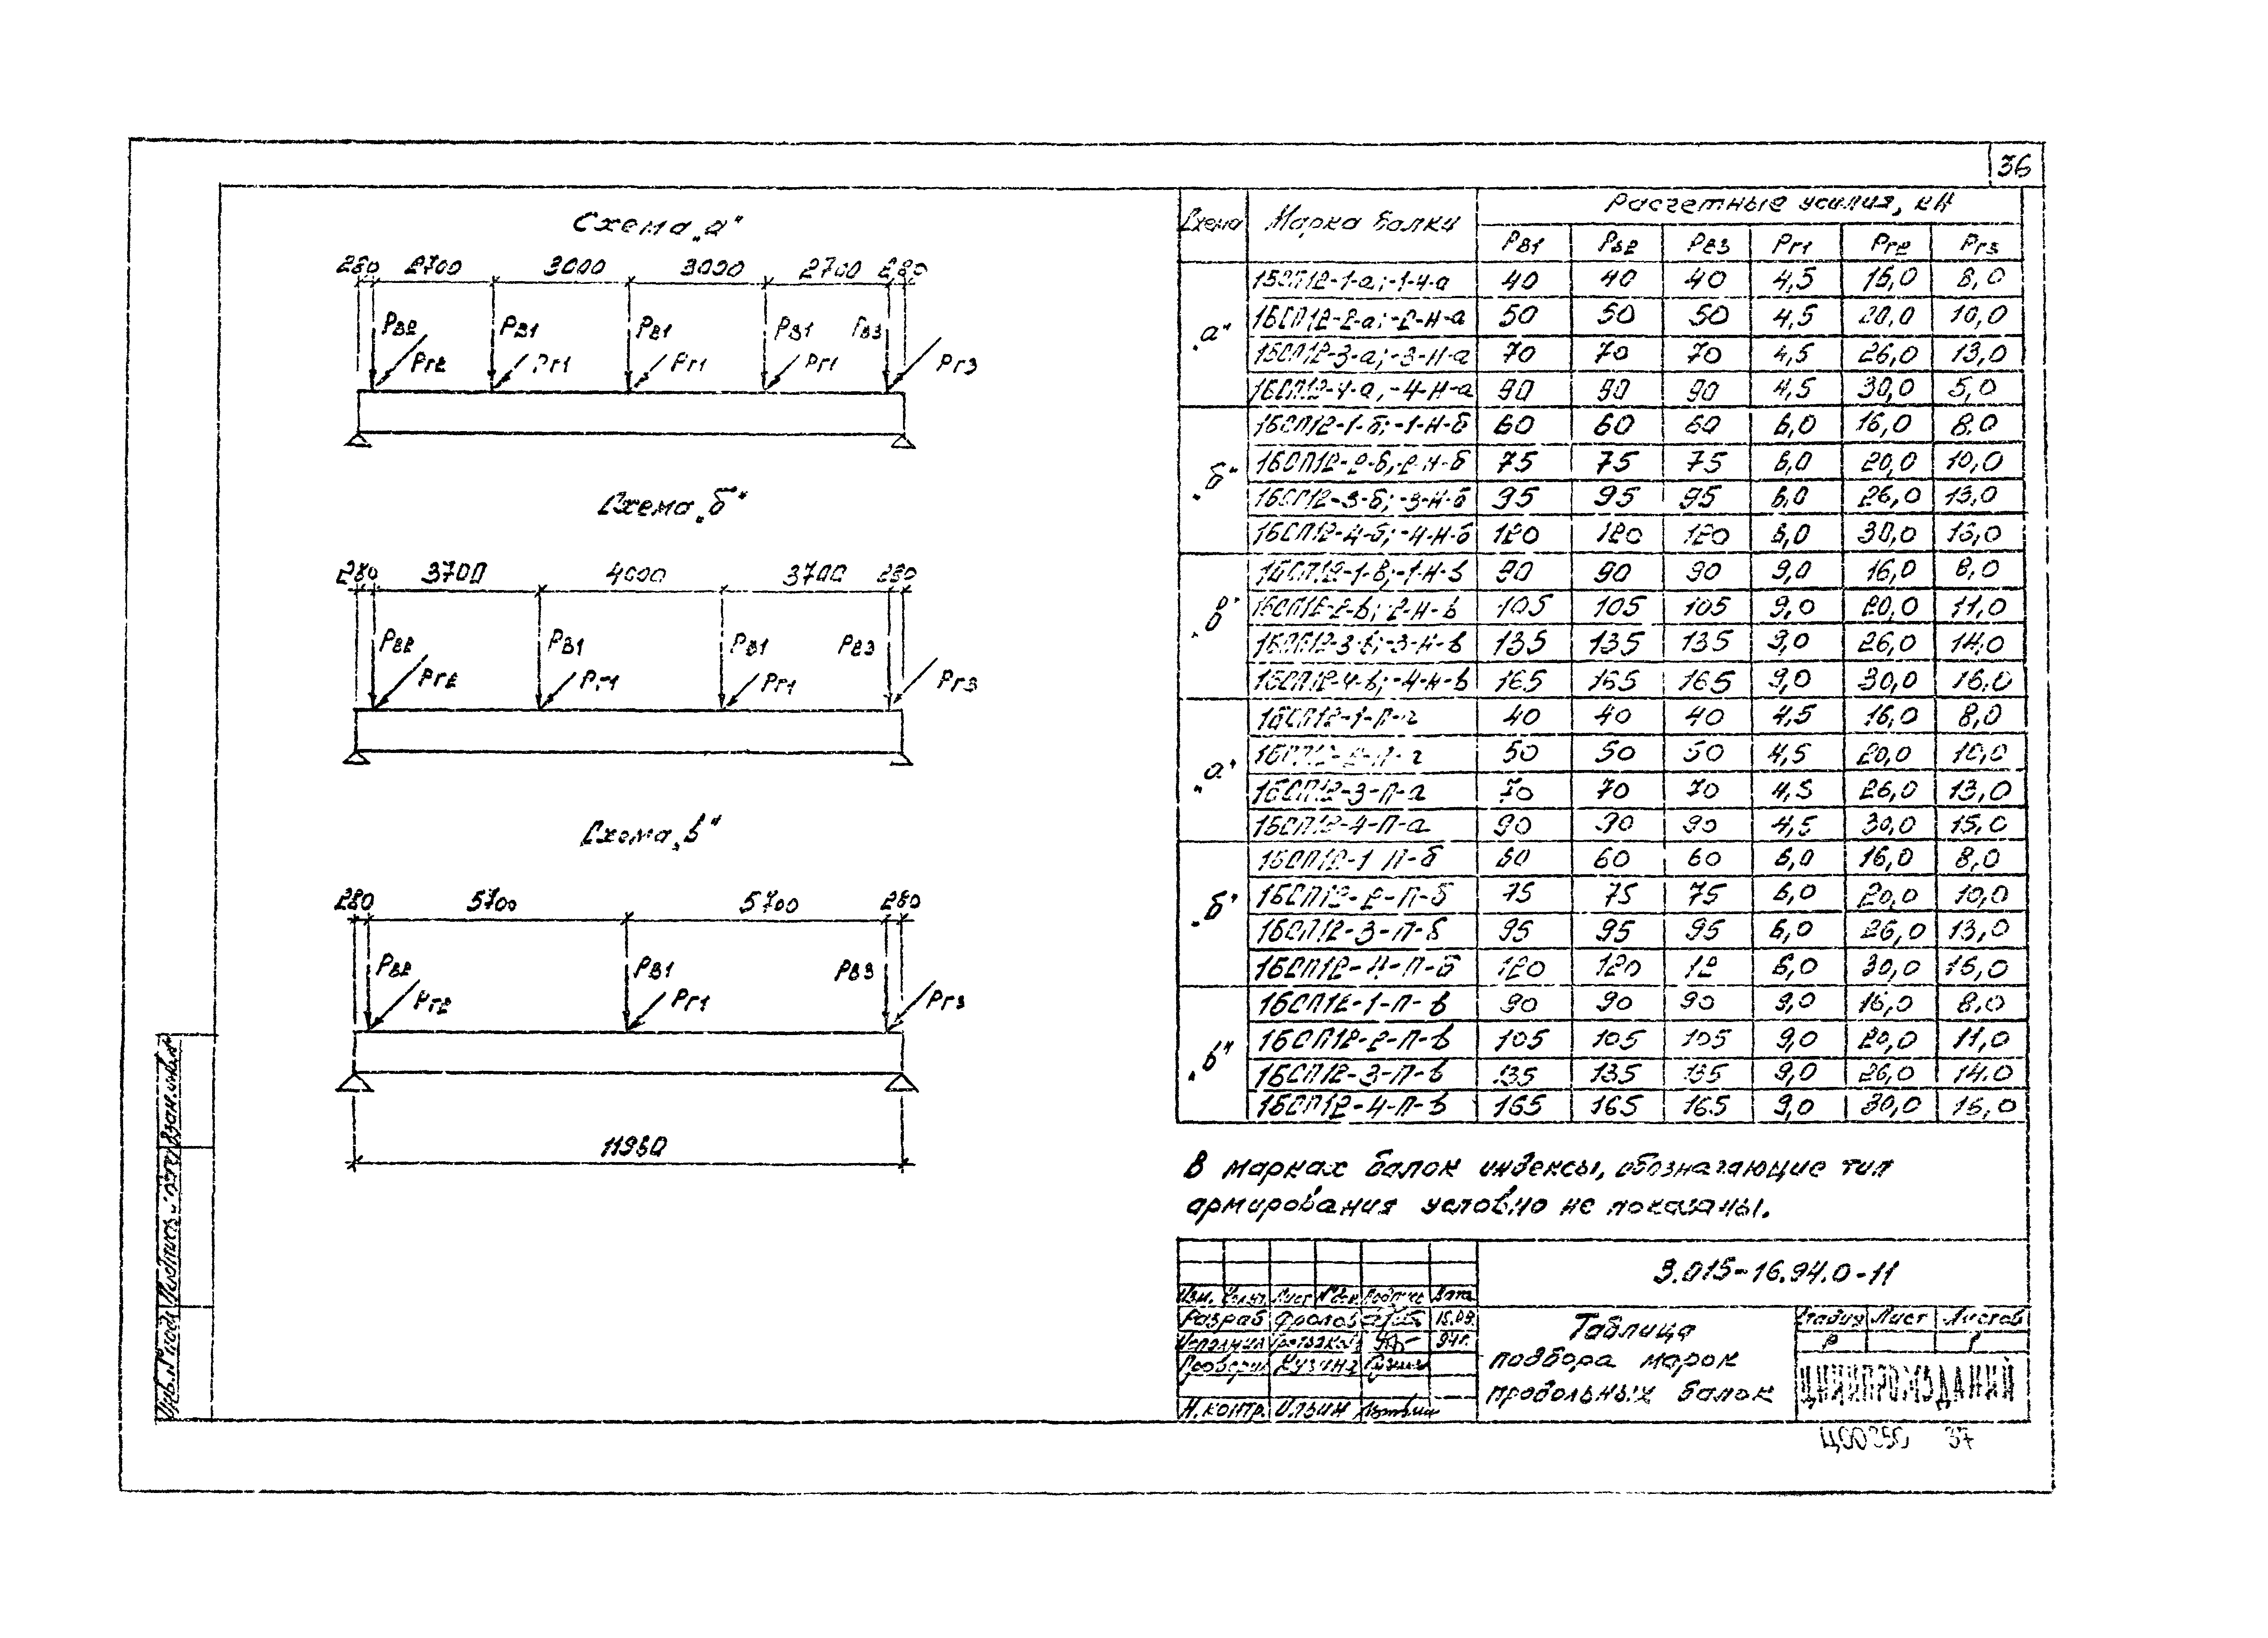 36
Схема „а"
280 2700 3000 3000 2700 280
Рв2 Рв1 Рв1 Рв1 Рв3
Рг2 Рг1 Рг1 Рг1 Рг3
Схема „б"
280 3700 4000 3700 280
Рв2 Рв1 Рв1 Рв3
Рг2 Рг1 Рг1 Рг3
Схема „в"
280 5700 5700 280
Рв2 Рв1 Рв3
Рг2 Рг1 Рг3
11960
Схема Марка балки Расчетные усилия, кН
Рв1 Рв2 Рв3 Рг1 Рг2 Рг3
„а"
1БСП12-1-а; -1-Н-а 40 40 40 4,5 16,0 8,0
1БСП12-2-а; -2-Н-а 50 50 50 4,5 20,0 10,0
1БСП12-3-а; -3-Н-а 70 70 70 4,5 26,0 13,0
1БСП12-4-а, -4-Н-а 90 90 90 4,5 30,0 5,0
„б"
1БСП12-1-б; -1-Н-б 60 60 60 6,0 16,0 8,0
1БСП12-2-б, -2-Н-б 75 75 75 6,0 20,0 10,0
1БСП12-3-б; -3-Н-б 95 95 95 6,0 26,0 13,0
1БСП12-4-б; -4-Н-б 120 120 120 6,0 30,0 15,0
„в"
1БСП12-1-в; -1-Н-в 90 90 90 9,0 16,0 8,0
1БСП12-2-в; -2-Н-в 105 105 105 9,0 20,0 11,0
1БСП12-3-в; -3-Н-в 135 135 135 9,0 26,0 14,0
1БСП12-4-в; -4-Н-в 165 165 165 9,0 30,0 16,0
„а"
1БСП12-1-П-а 40 40 40 4,5 16,0 8,0
1БСП12-2-П-а 50 50 50 4,5 20,0 10,0
1БСП12-3-П-а 70 70 70 4,5 26,0 13,0
1БСП12-4-П-а 90 90 90 4,5 30,0 15,0
„б"
1БСП12-1 П-б 60 60 60 6,0 16,0 8,0
1БСП12-2-П-б 75 75 75 6,0 20,0 10,0
1БСП12-3-П-б 95 95 95 6,0 26,0 13,0
1БСП12-4-П-б 120 120 12 6,0 30,0 15,0
„в"
1БСП12-1-П-в 90 90 90 9,0 16,0 8,0
1БСП12-2-П-в 105 105 105 9,0 20,0 11,0
1БСП12-3-П-в 135 135 135 9,0 26,0 14,0
1БСП12-4-П-в 165 165 165 9,0 30,0 16,0
В марках балок индексы, обозначающие тип
армирования условно не показаны.
3.015-16.94.0-11
Изм. Кол.уч Лист №док Подпись Дата
Разраб Фролов 15.09.
Исполнил 94г.
Проверил Кузина
Н.контр. Ильин
Таблица
подбора марок
продольных балок
Стадия Лист Листов
Р 1
ЦНИИПРОМЗДАНИЙ
Ц00250 37
Инв.№ подл Подпись и дата Взам.инв.№